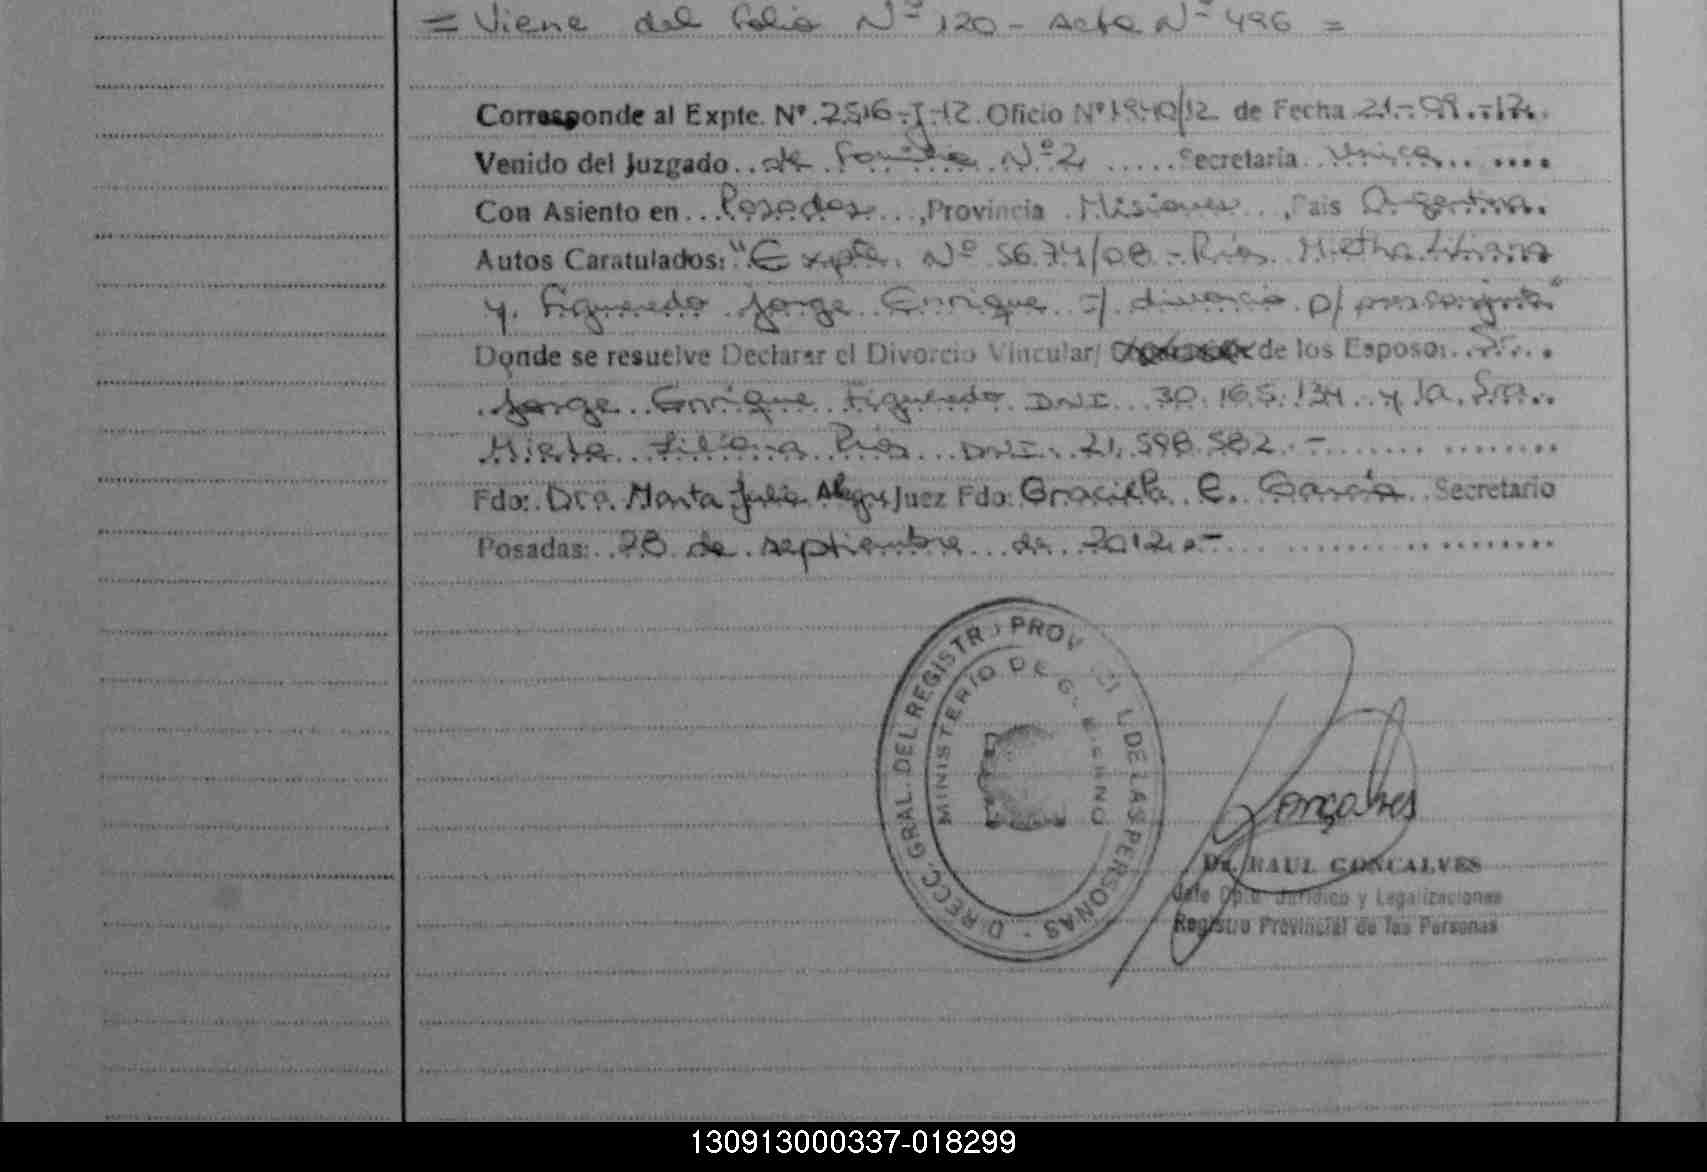 = Viene del folio Nº 120 - Acta Nº 496 =
Corresponde al Expte. Nº 2516-J-12 Oficio Nº 1940/12 de Fecha 21-09-12
Venido del Juzgado de Familia Nº 2 Secretaria Unica
Con Asiento en Posadas, Provincia Misiones, Pais Argentina
Autos Caratulados: "Expte. Nº 5674/08 - Rios Mirtha Liliana
y Figueredo Jorge Enrique s/ divorcio p/ pres. conjunta"
Donde se resuelve Declarar el Divorcio Vincular/ de los Esposos: Sr.
Jorge Enrique Figueredo DNI 30.165.134 y la Sra.
Mirta Liliana Rios DNI 21.598.582.-
Fdo: Dra. Marta Julia Alegre Juez Fdo: Graciela E. Garcia Secretario
Posadas: 28 de septiembre de 2012.-
DIRECC. GRAL. DEL REGISTRO PROVINCIAL DE LAS PERSONAS -
MINISTERIO DE GOBIERNO
Goncalves
Dr. RAUL GONCALVES
Jefe Dpto. Jurídico y Legalizaciones
Registro Provincial de las Personas
130913000337-018299